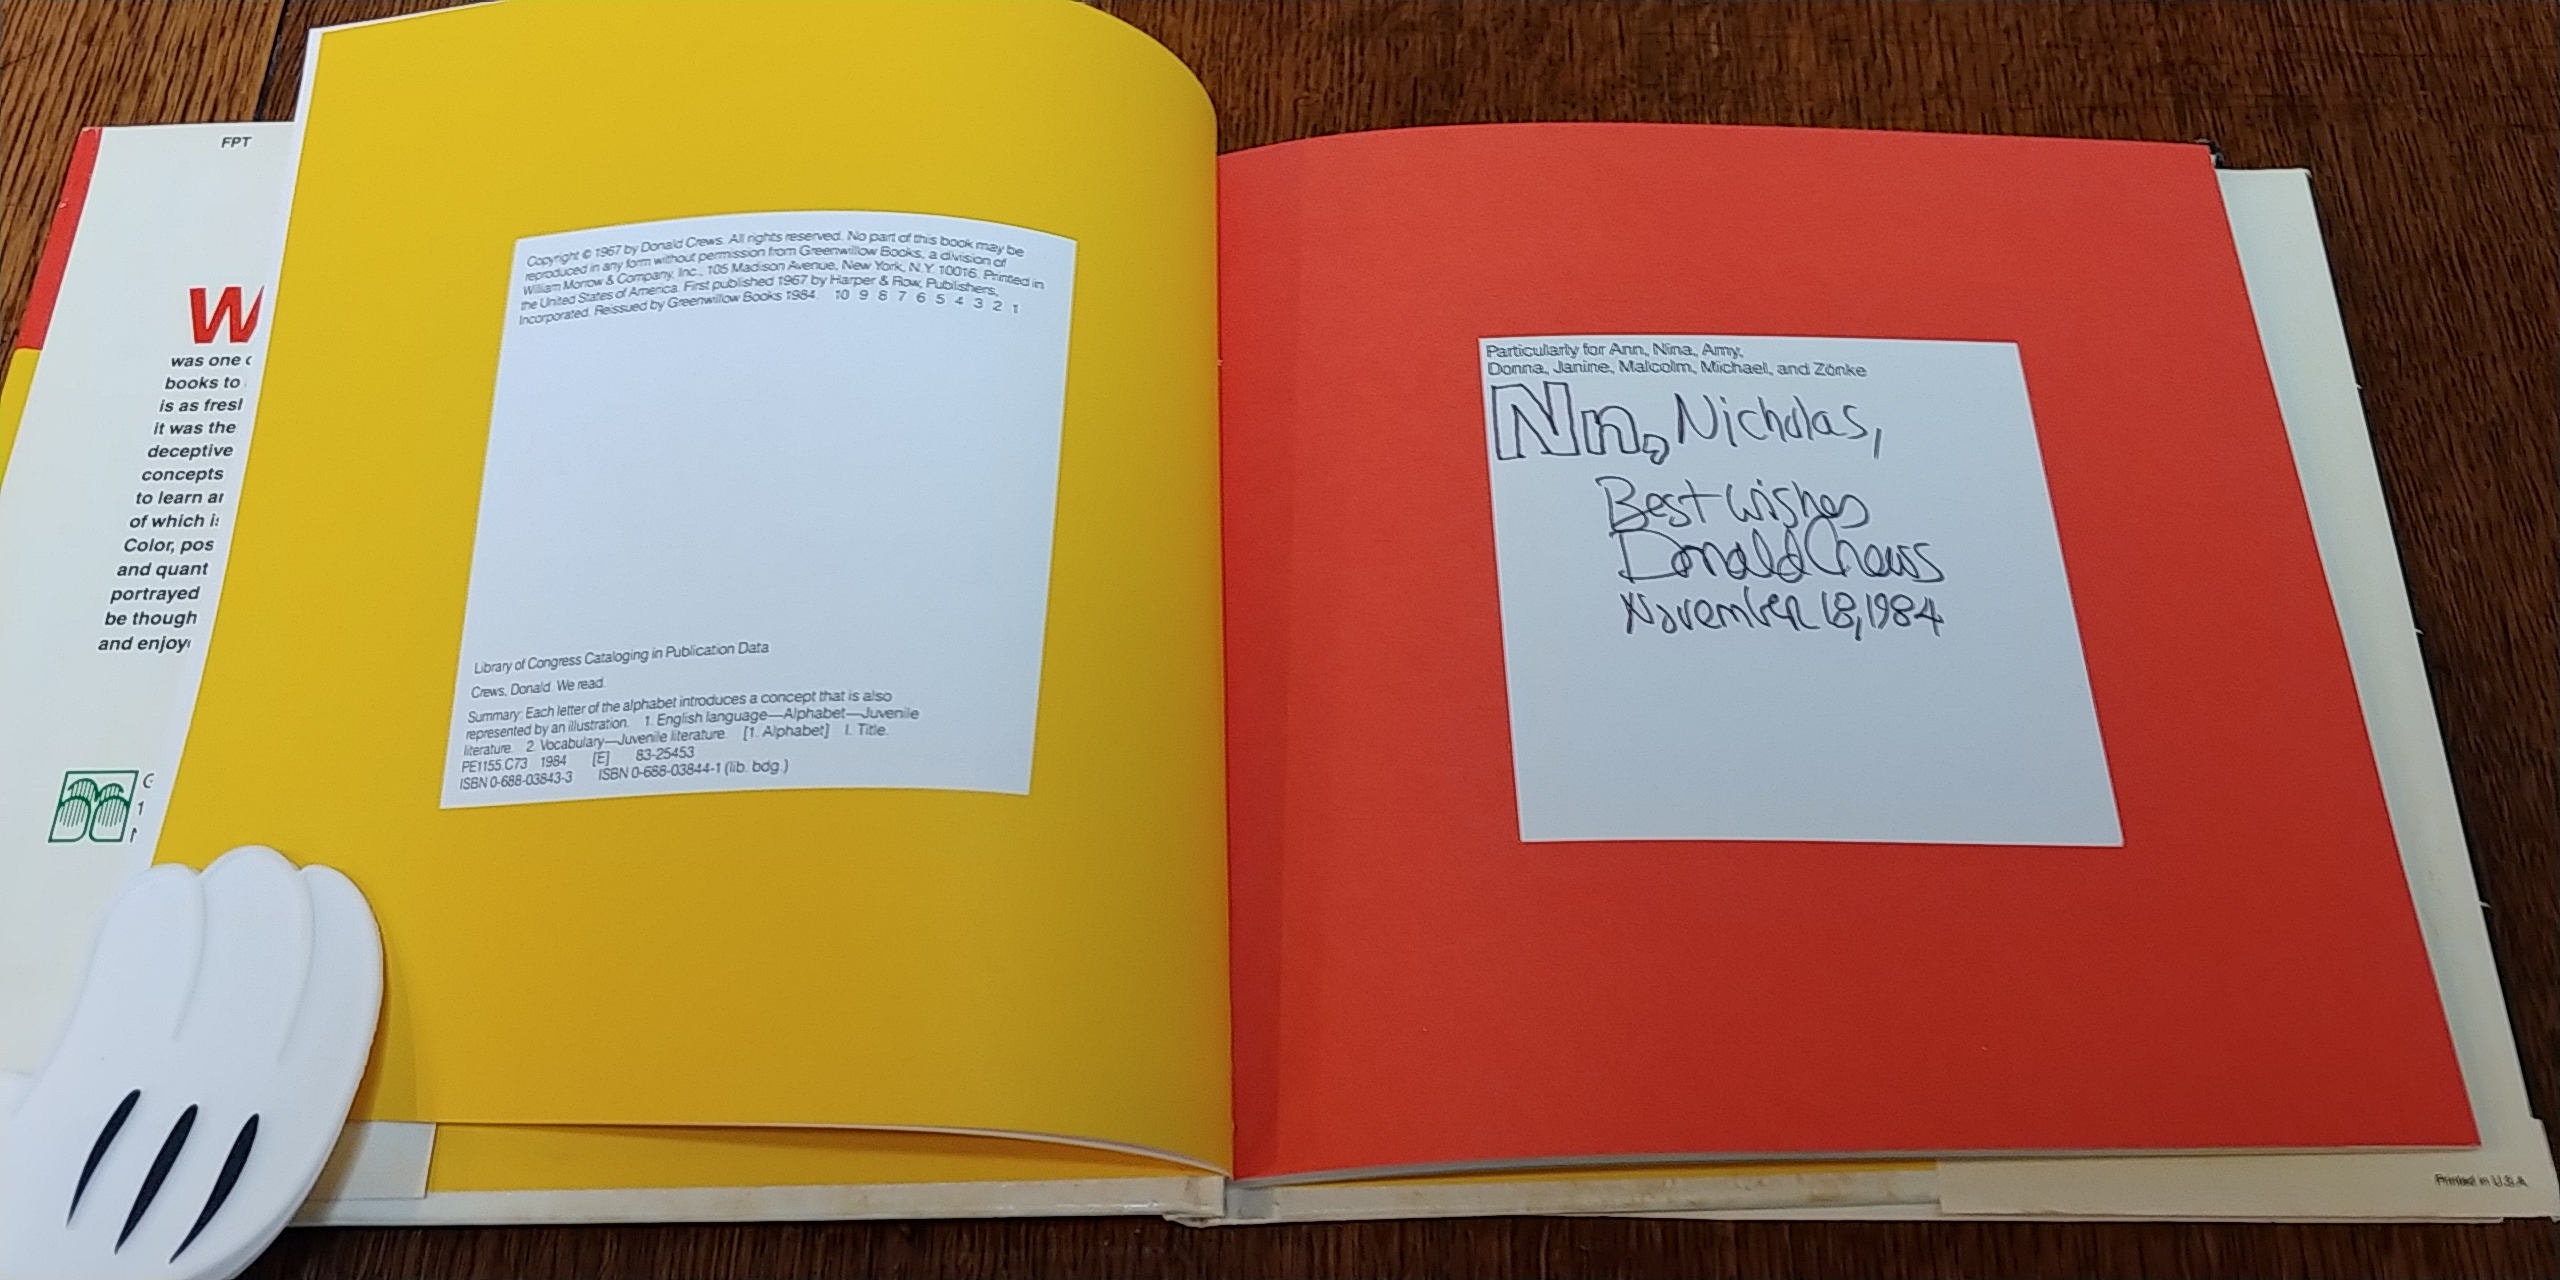 FPT
W
was one
books to
is as fresl
it was the
deceptive
concepts
to learn ar
of which i
Color, pos
and quant
portrayed
be though
and enjoy
Copyright © 1967 by Donald Crews. All rights reserved. No part of this book may be
reproduced in any form without permission from Greenwillow Books, a division of
William Morrow & Company, Inc., 105 Madison Avenue, New York, N.Y. 10016. Printed in
the United States of America. First published 1967 by Harper & Row, Publishers,
Incorporated. Reissued by Greenwillow Books 1984. 10 9 8 7 6 5 4 3 2 1
Library of Congress Cataloging in Publication Data
Crews, Donald. We read.
Summary: Each letter of the alphabet introduces a concept that is also
represented by an illustration. 1. English language—Alphabet—Juvenile
literature. 2. Vocabulary—Juvenile literature. [1. Alphabet] I. Title.
PE1155.C73 1984 [E] 83-25453
ISBN 0-688-03843-3 ISBN 0-688-03844-1 (lib. bdg.)
Particularly for Ann, Nina, Amy,
Donna, Janine, Malcolm, Michael, and Zönke
Nn, Nicholas,
Best wishes
Donald Crews
November 18, 1984
Printed in U.S.A.